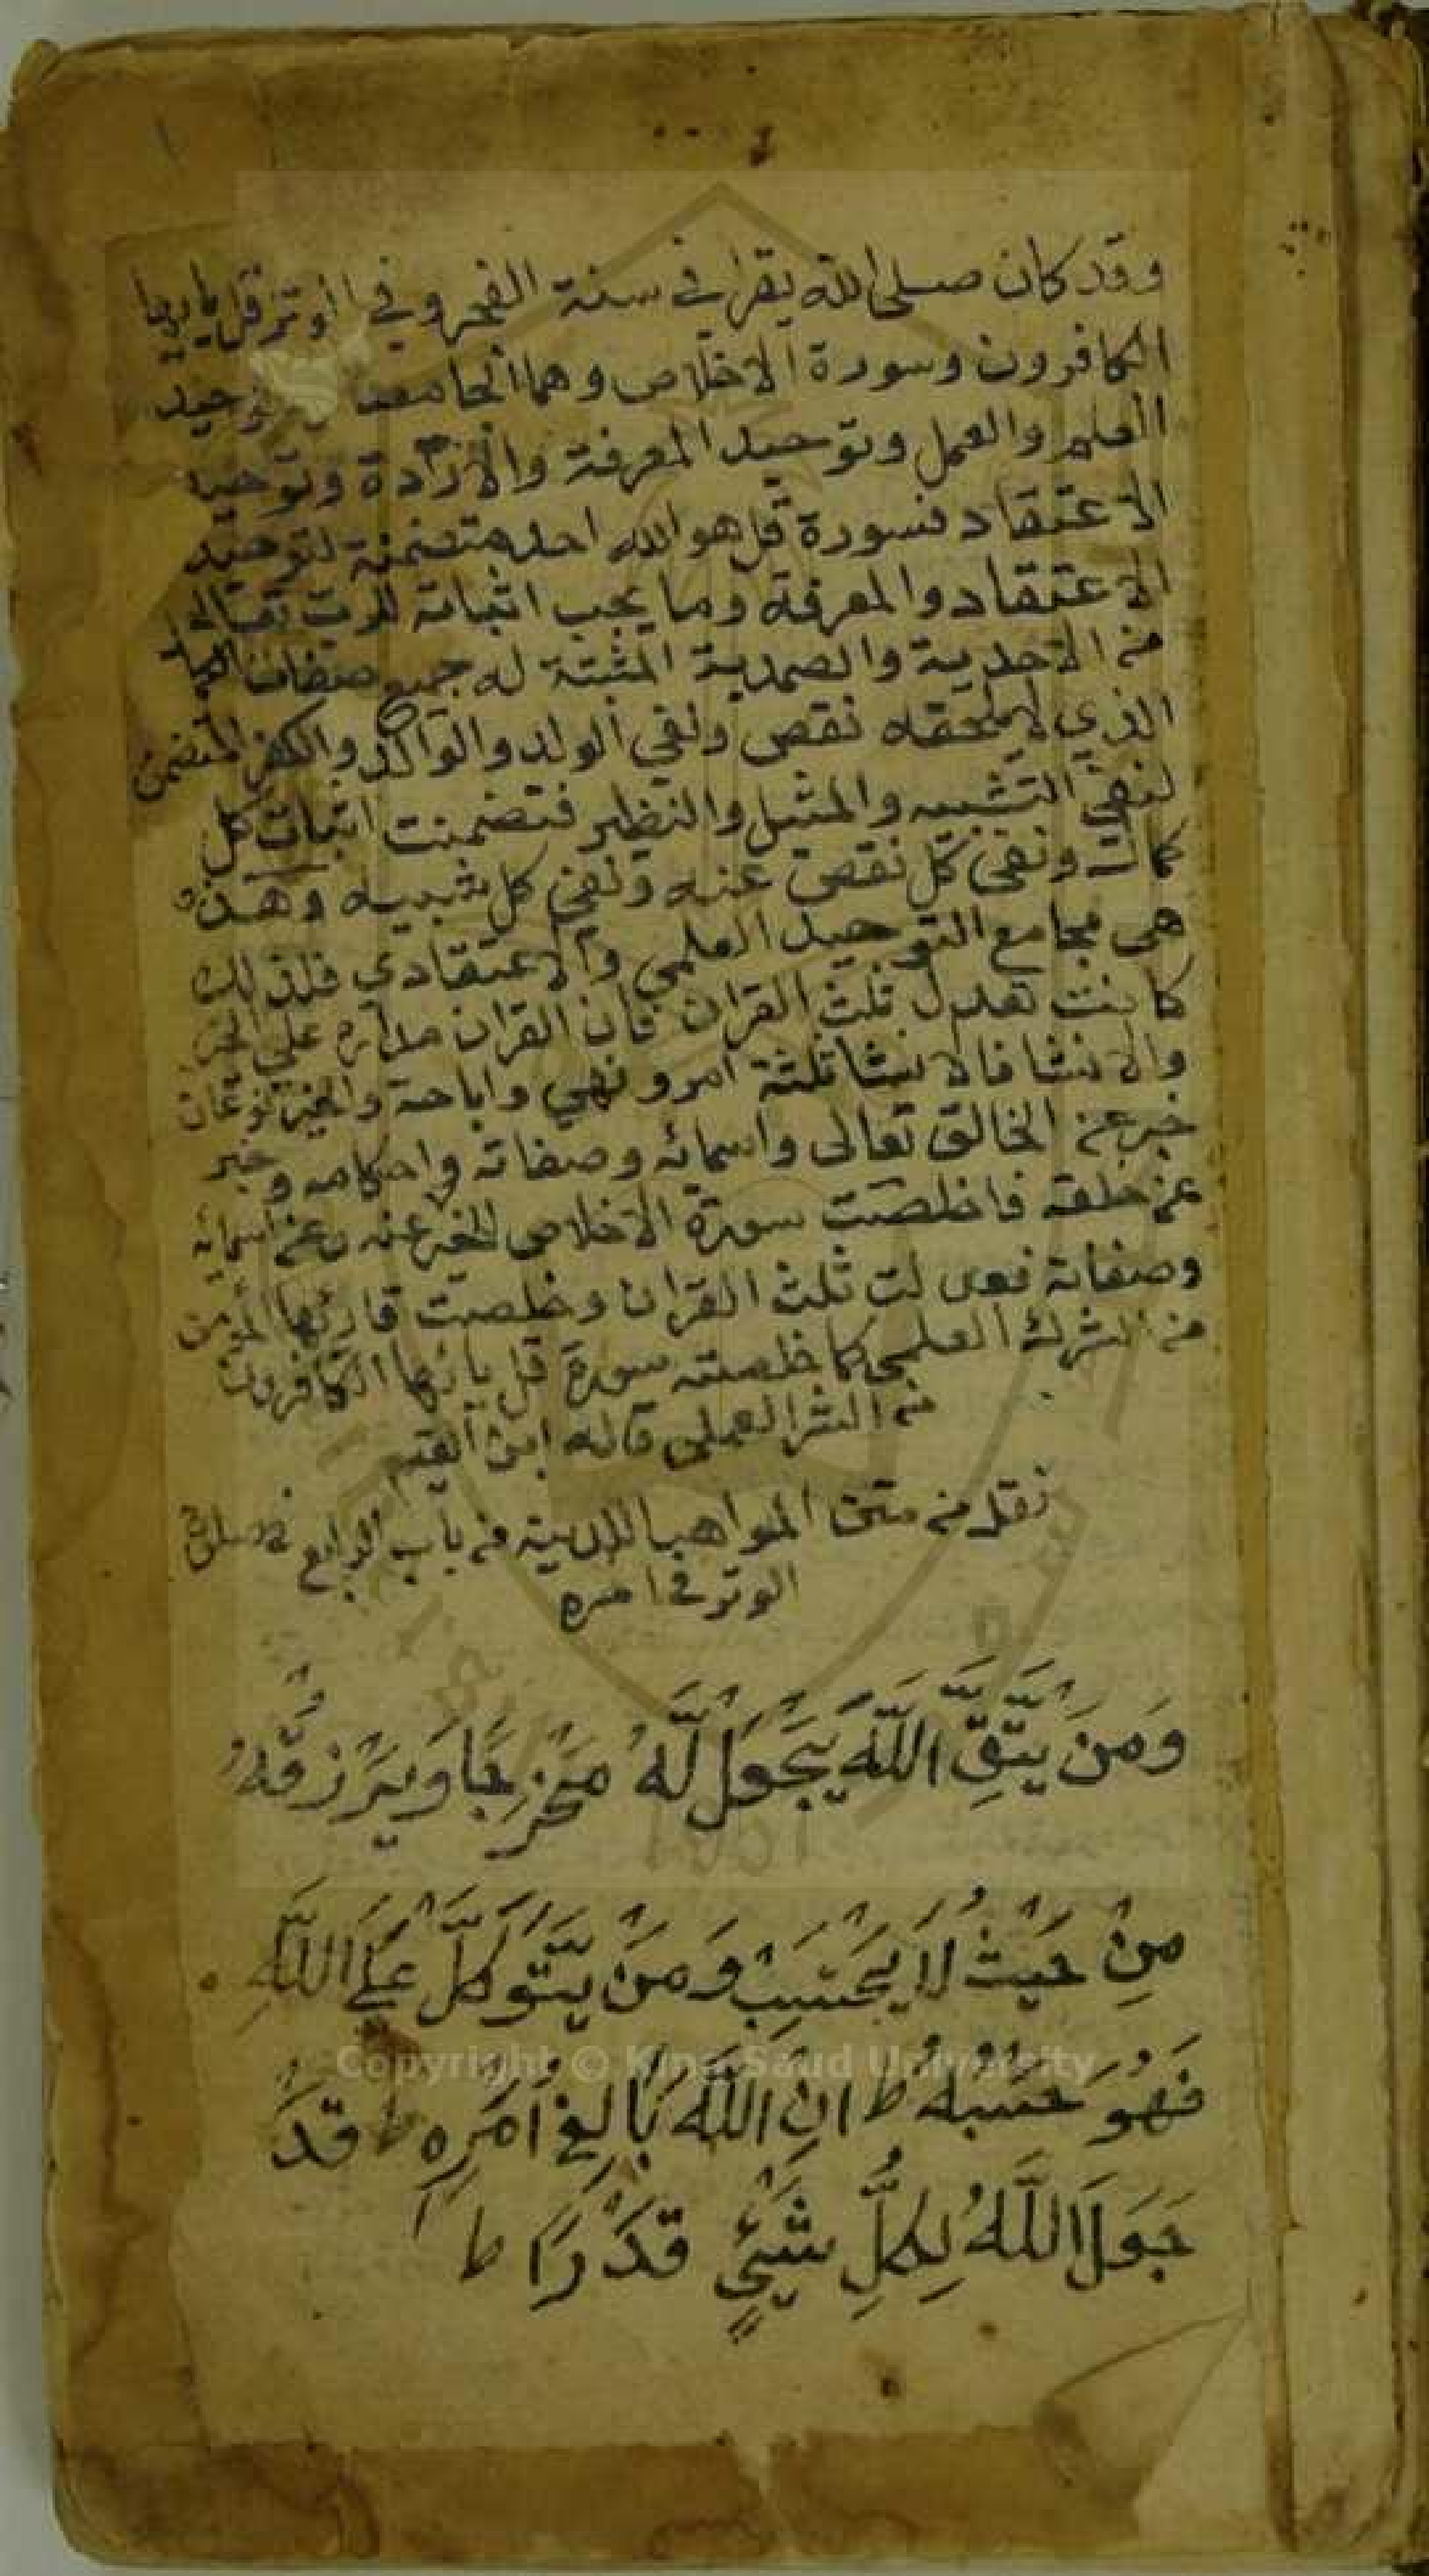 وقد كان صلى الله يقرا في سنة الفجر وفي الوتر قل يا ايها
الكافرون وسورة الاخلاص وهما الجامعتا لتوحيد
العلم والعمل وتوحيد المعرفة والارادة وتوحيد
الاعتقاد فسورة قل هو الله احد متضمنة لتوحيد
الاعتقاد والمعرفة وما يجب اثباته للرب تعالى
من الاحدية والصمدية المثبتة له جميع صفات الكمال
الذي لا يلحقه نقص ونفي الولد والوالد والكفؤ المتضمن
لنفي التشبيه والمثيل والنظير فتضمنت اثبات كل
كمال له ونفي كل نقص عنه ونفي كل شبيه وهذه
هي مجامع التوحيد العلمي والاعتقادي فلذلك
كانت تعدل ثلث القران فان القران مداره على الخبر
والانشا فالانشا ثلثة امر ونهي واباحة والخبر نوعان
خبر عن الخالق تعالى واسمائه وصفاته واحكامه وخبر
عن خلقه فاخلصت سورة الاخلاص الخبر عنه وعن اسمائه
وصفاته فعدلت ثلث القران وخلصت قارئها المؤمن
من الشرك العلمي كما خلصته سورة قل يا ايها الكافرون
من الشر العملي قاله ابن القيم
نقل من متن المواهب اللدنية من باب الرابع في صلوة
الوتر في اخره
وَمَنْ يَتَّقِ اللَّهَ يَجْعَلْ لَهُ مَخْرَجًا وَيَرْزُقْهُ
مِنْ حَيْثُ لَا يَحْتَسِبُ وَمَنْ يَتَوَكَّلْ عَلَى اللَّهِ
فَهُوَ حَسْبُهُ ط اِنَّ اللَّهَ بَالِغُ اَمْرِهِ ط قَدْ
جَعَلَ اللَّهُ لِكُلِّ شَيْءٍ قَدْرًا ط
Copyright © King Saud University
1957